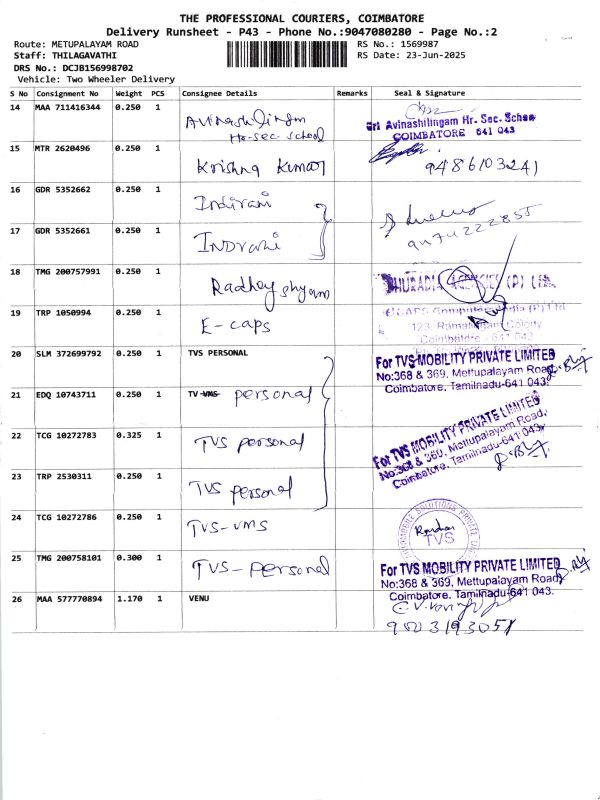 THE PROFESSIONAL COURIERS, COIMBATORE
Delivery Runsheet - P43 - Phone No.:9047080280 - Page No.:2
Route: METUPALAYAM ROAD RS No.: 1569987
Staff: THILAGAVATHI RS Date: 23-Jun-2025
DRS No.: DCJB156998702
Vehicle: Two Wheeler Delivery
S No Consignment No Weight PCS Consignee Details Remarks Seal & Signature
14 MAA 711416344 0.250 1 Avinashilingam
Hr.sec.school
Sri Avinashilingam Hr. Sec. School
COIMBATORE 641 043
15 MTR 2620496 0.250 1 Krishna Kumar 9486103241
16 GDR 5352662 0.250 1 Indirani
17 GDR 5352661 0.250 1 INDrani
18 TMG 200757991 0.250 1 Radhey shyam AGENCIES (P) Ltd.
19 TRP 1050994 0.250 1 E-caps
123, Ramalingam Colony
Coimbatore
20 SLM 372699792 0.250 1 TVS PERSONAL
For TVS MOBILITY PRIVATE LIMITED
No:368 & 369, Mettupalayam Road
Coimbatore, Tamilnadu-641 043.
21 EDQ 10743711 0.250 1 TV VMS personal
22 TCG 10272783 0.325 1 TVS personal
For TVS MOBILITY PRIVATE LIMITED
No:368 & 369, Mettupalayam Road,
Coimbatore, Tamilnadu-641 043.
23 TRP 2530311 0.250 1 TVS personal
24 TCG 10272786 0.250 1 TVS-VMS
SOLUTIONS PRIVATE
TVS
25 TMG 200758101 0.300 1 TVS-Personal
For TVS MOBILITY PRIVATE LIMITED
No:368 & 369, Mettupalayam Road
Coimbatore, Tamilnadu-641 043.
26 MAA 577770894 1.170 1 VENU
9503193051